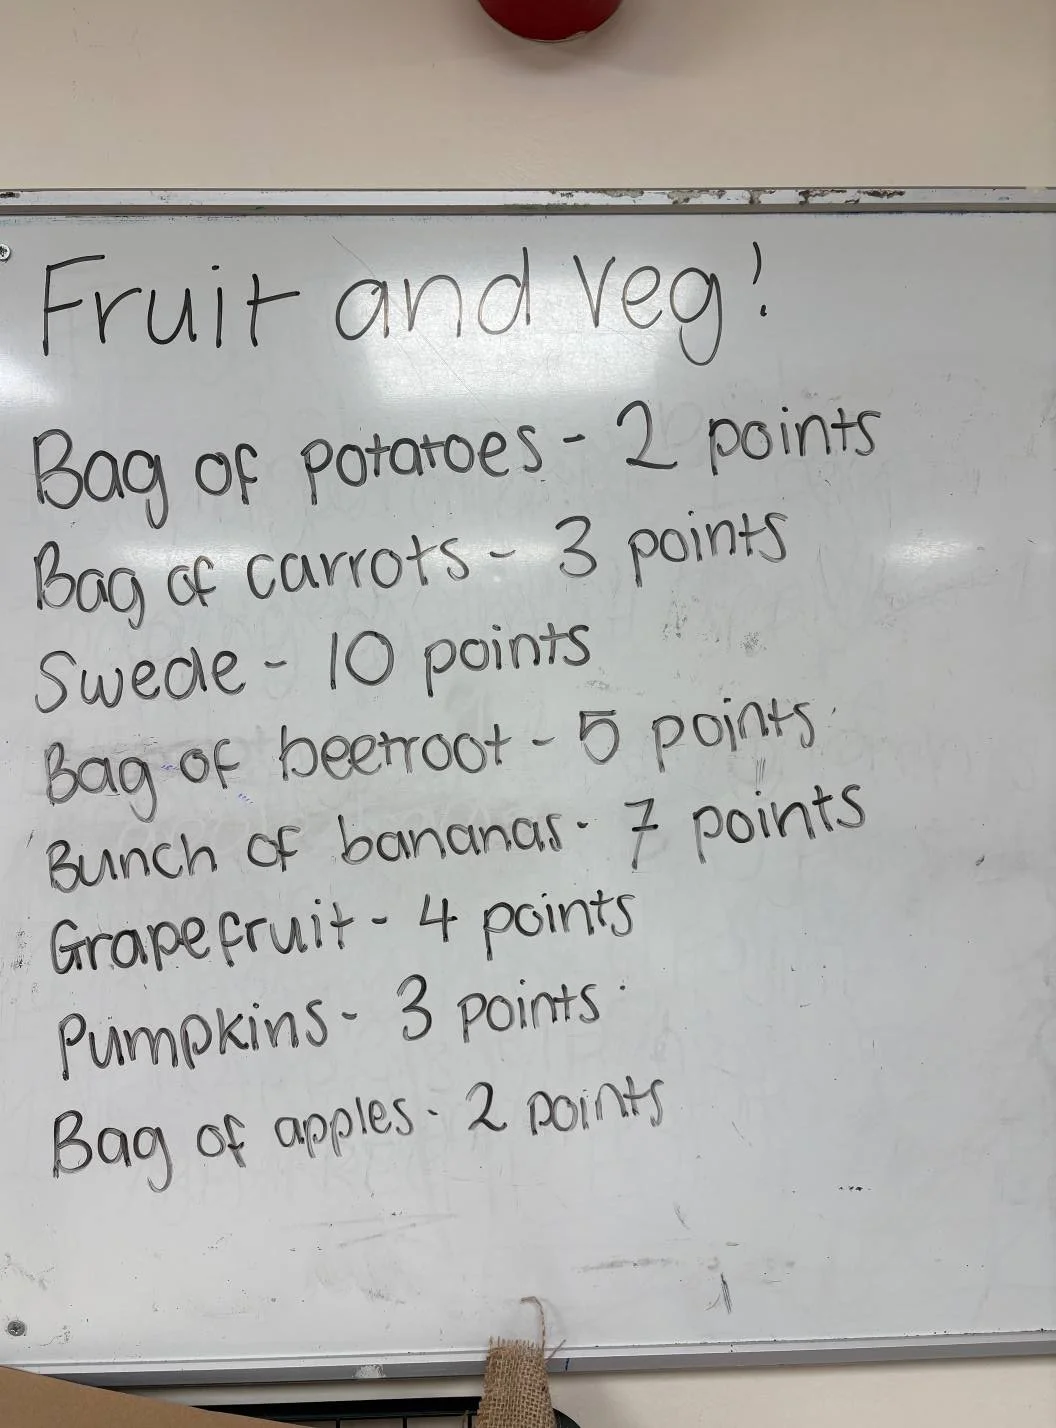 Fruit and veg!
Bag of potatoes - 2 points
Bag of carrots - 3 points
Swede - 10 points
Bag of beetroot - 5 points
Bunch of bananas - 7 points
Grapefruit - 4 points
Pumpkins - 3 points
Bag of apples - 2 points